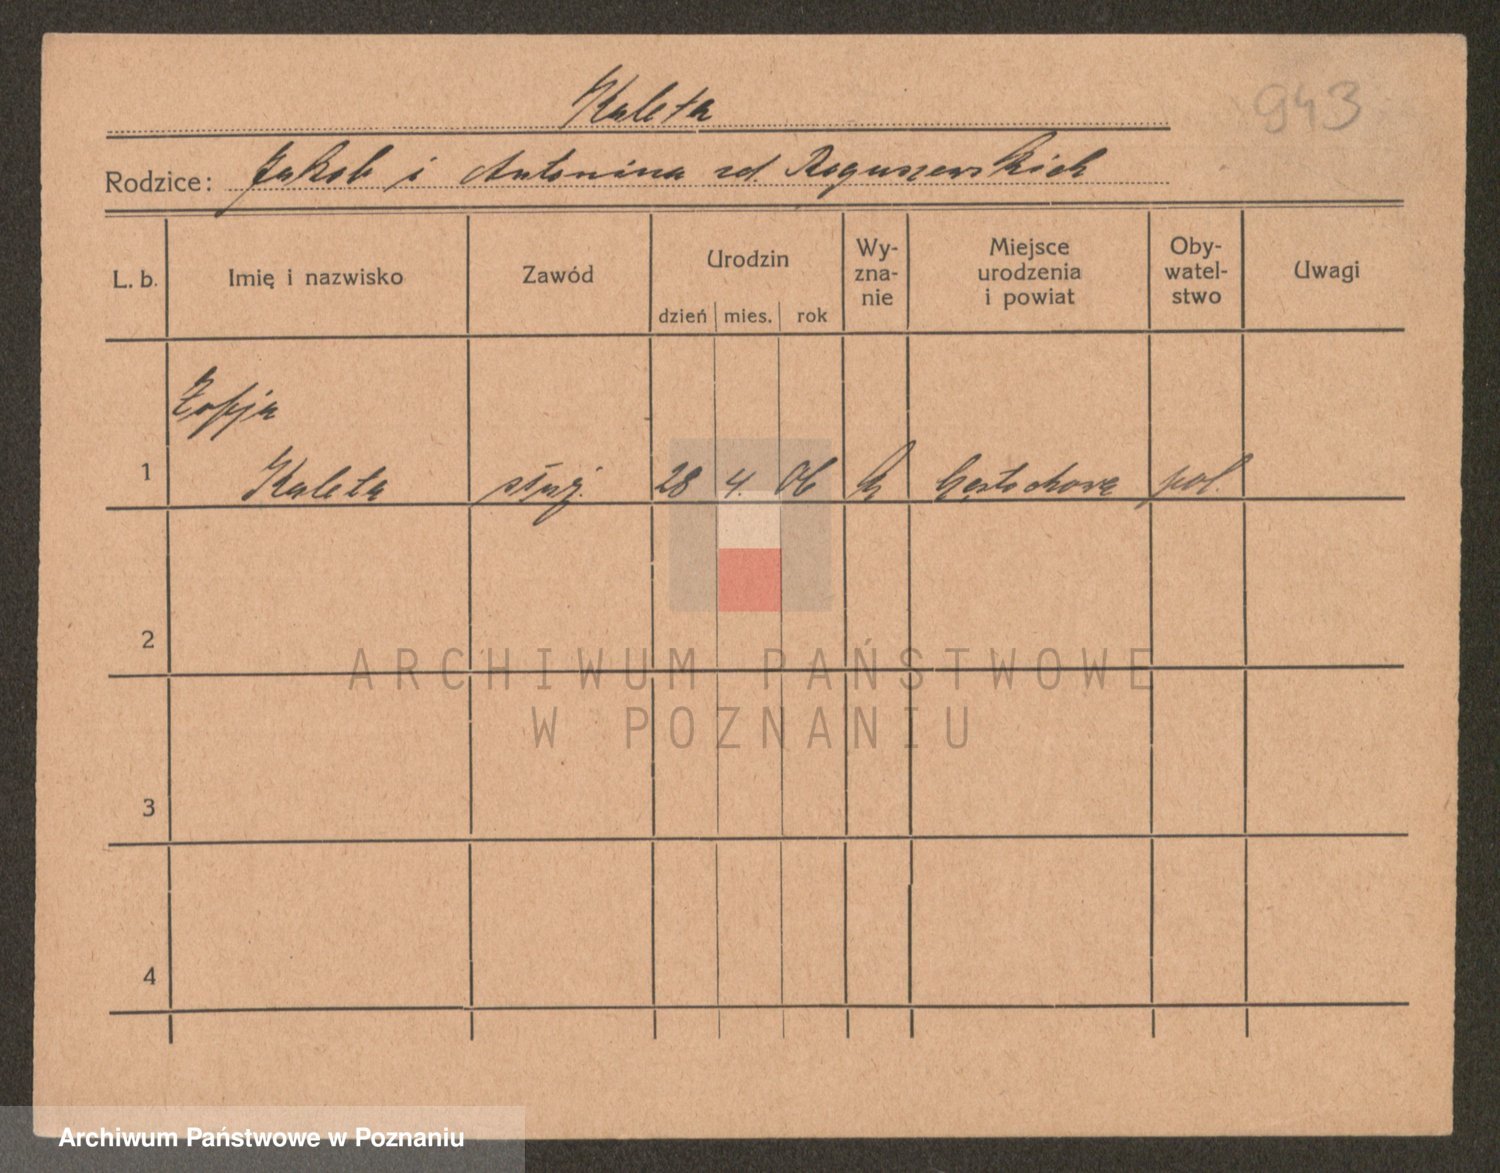 943
Kaleta
Rodzice: Jakob i Antonina zd. Roguszewskich
L. b. Imię i nazwisko Zawód Urodzin dzień mies. rok Wy-zna-nie Miejsce urodzenia i powiat Oby-watel-stwo Uwagi
Zofja
1 Kaleta służ. 28 4. 06 pol.
2
ARCHIWUM PAŃSTWOWE
W POZNANIU
3
4
Archiwum Państwowe w Poznaniu